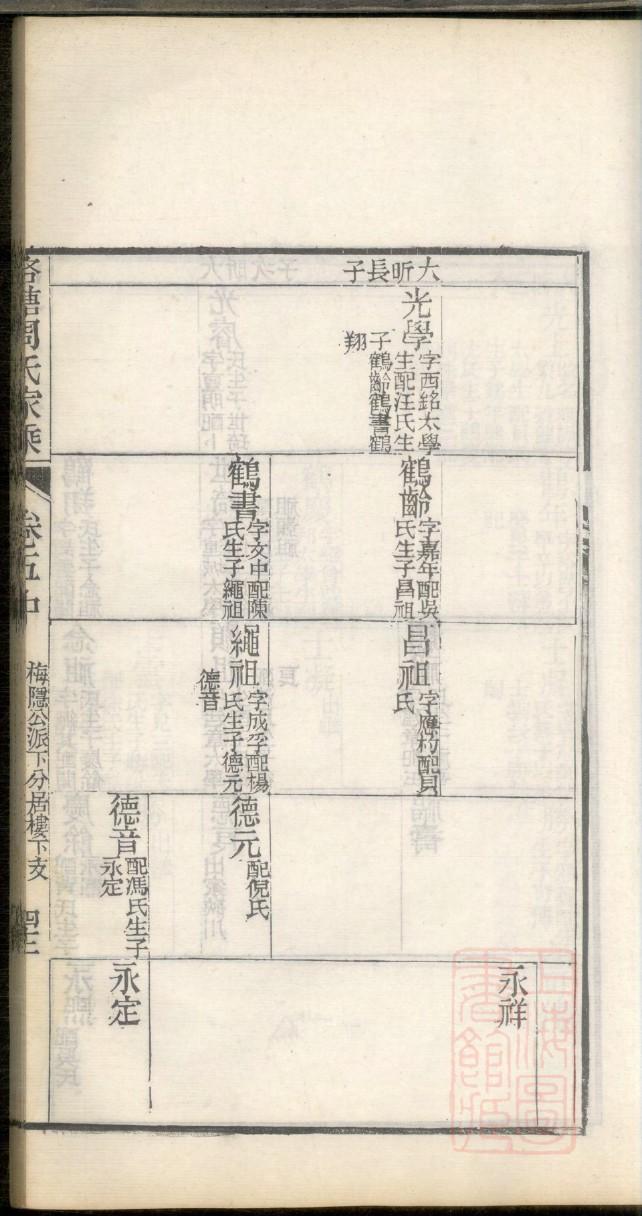 大昕長子
光學
字西銘太學
生配汪氏生
子鶴齡鶴書鶴
翔
鶴齡
字嘉年配吳
氏生子昌祖
鶴書
字文中配陳
氏生子繩祖
昌祖
字應村配貝
氏
繩祖
字成孚配楊
氏生子德元
德音
德元
配倪氏
德音
配馮氏生子
永定
永祥
永定
周氏家乘
卷五中
梅隱公派下分居樓下支